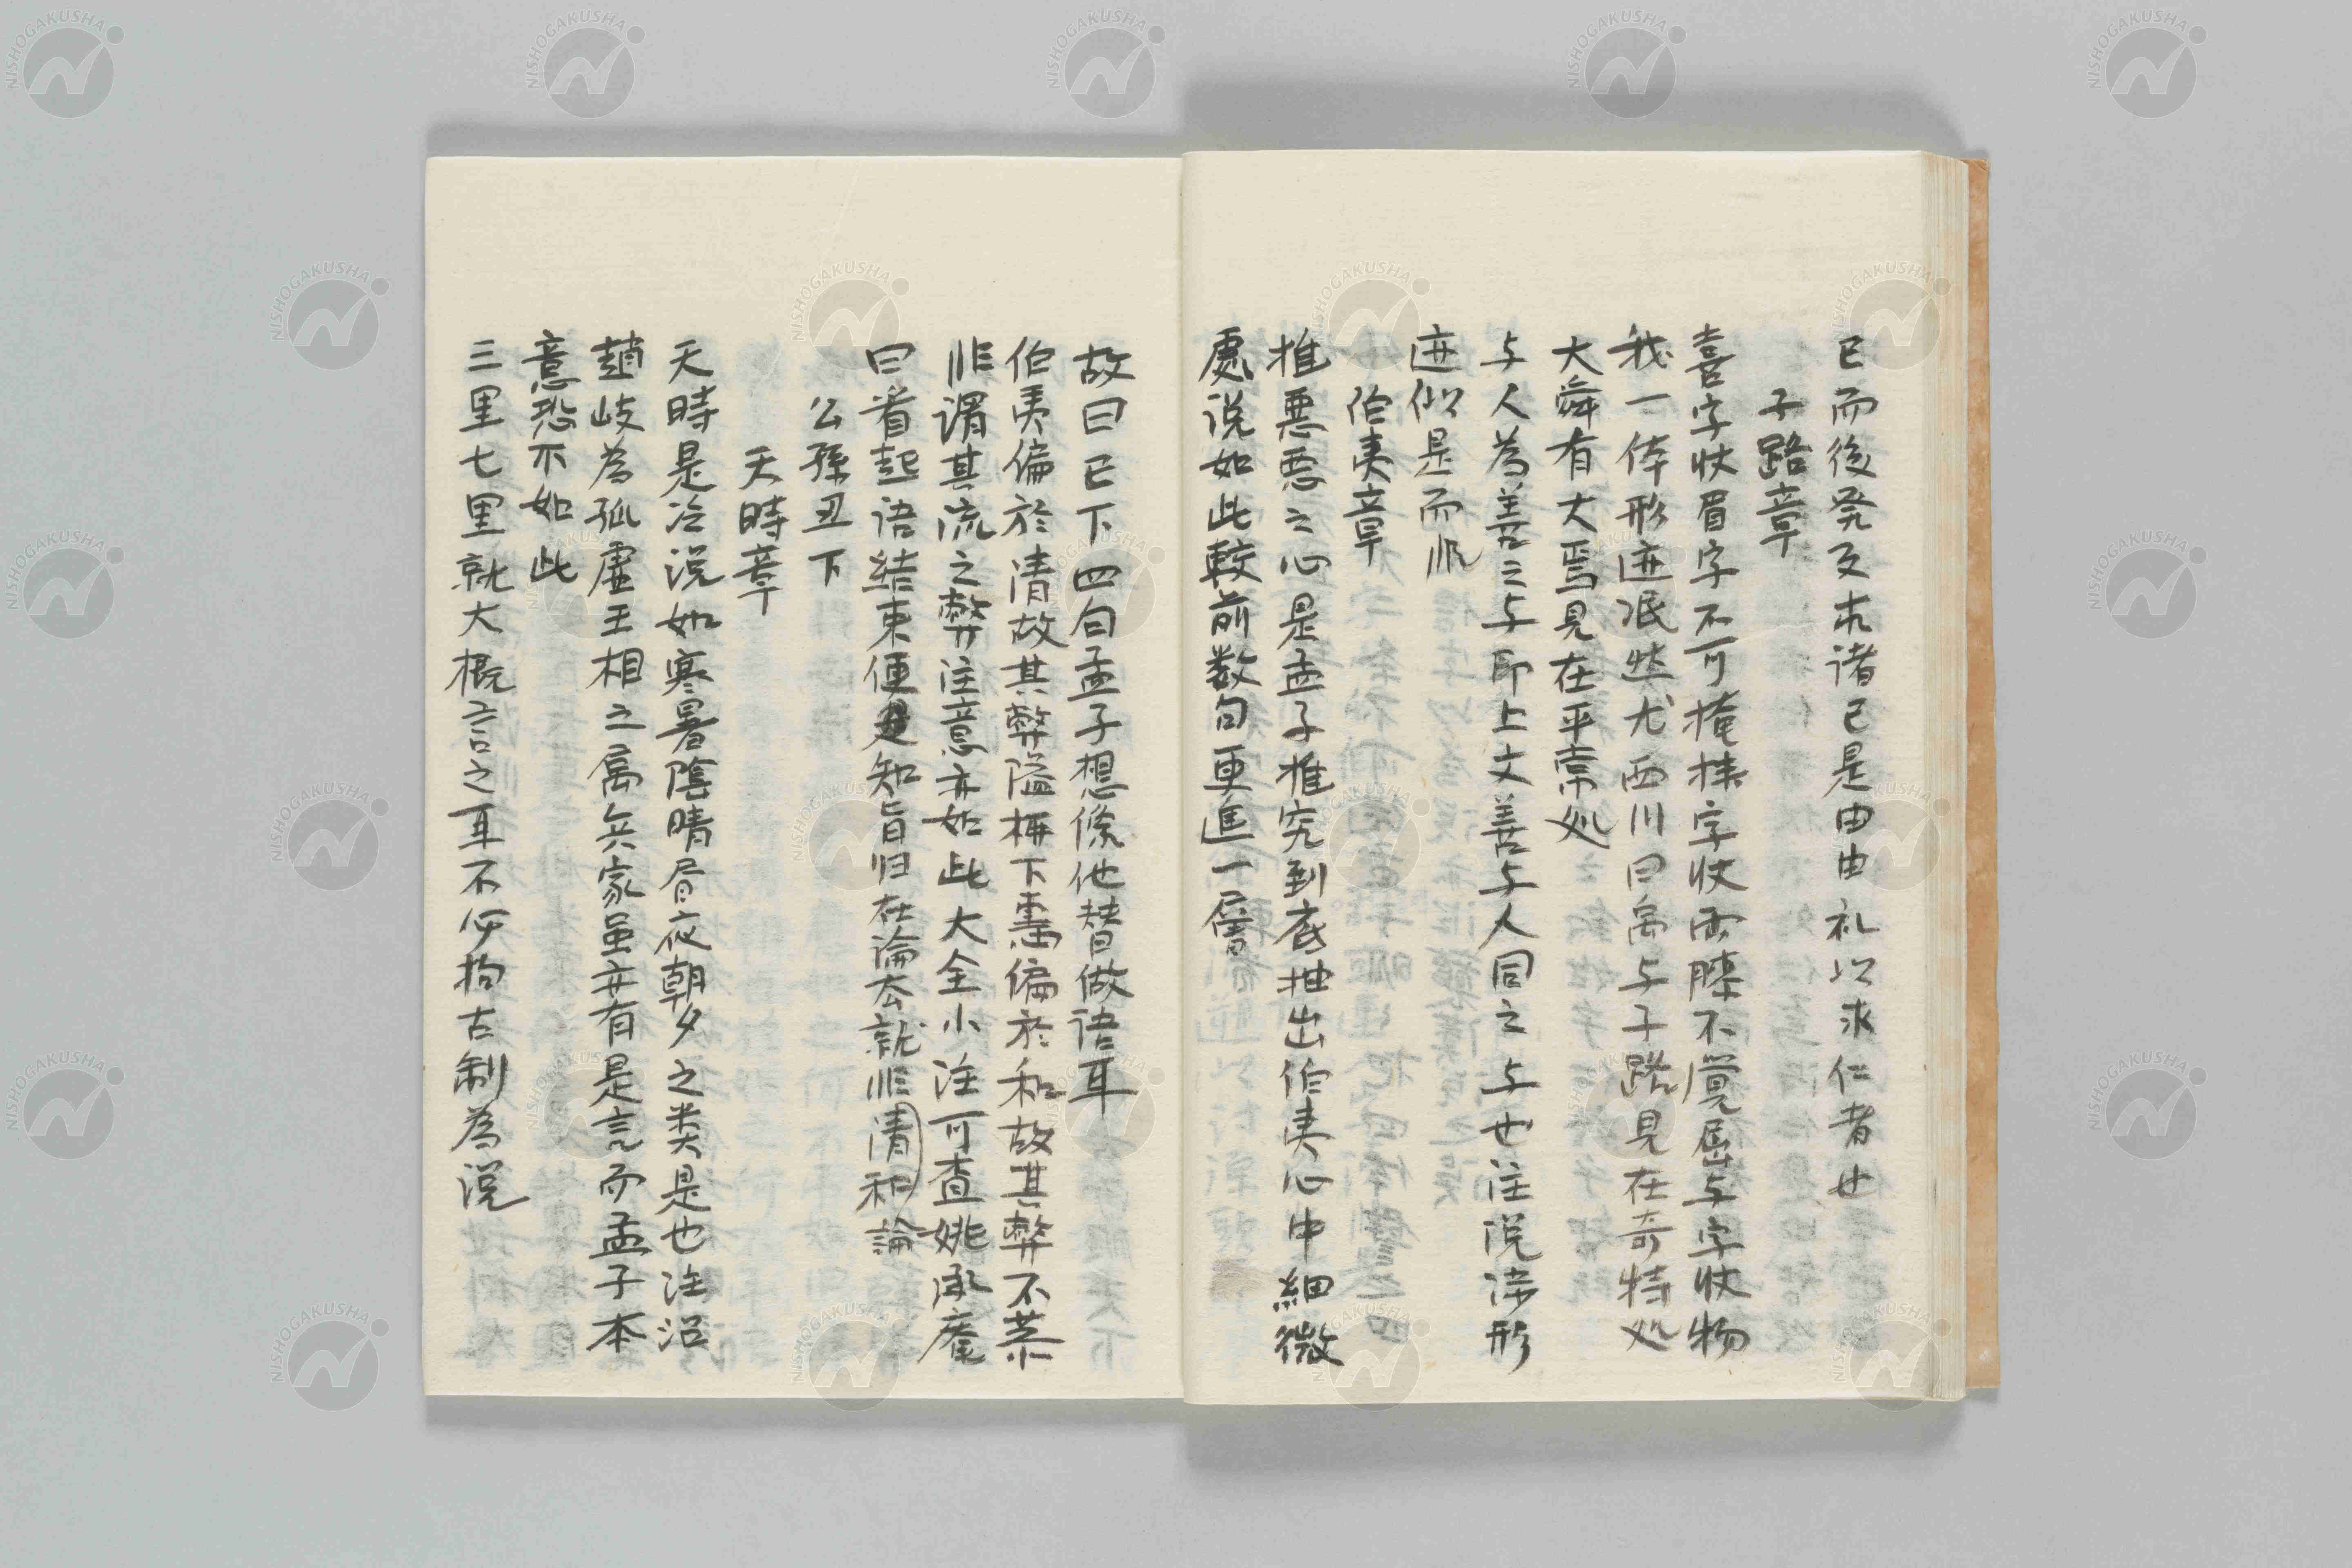 已而後発反求諸己是由由礼以求仁者也
子路章
喜字状眉字不可掩捨字状両膝不覚屈与字状物
我一体形迹泯然尤西川曰禹与子路見在奇特処
大舜有大焉見在平常処
与人為善之与即上文善与人同之与也注説渉形
迹似是而非
伯夷章
推悪悪之心是孟子推究到底抽出伯夷心中細微
處説如此較前数句更進一層
故曰已下四句孟子想像他替做語耳
伯夷偏於清故其弊隘柳下恵偏於和故其弊不恭
非謂其流之弊注意亦如此大全小注可査姚承庵
曰看起語結束便是知旨归在論去就非清和論
公孫丑下
天時章
天時是泛説如寒暑陰晴昏夜朝夕之类是也注沿
趙岐為孤虚王相之属兵家虽亦有是言而孟子本
意恐不如此
三里七里就大概言之耳不必拘古制為説
NISHOGAKUSHA